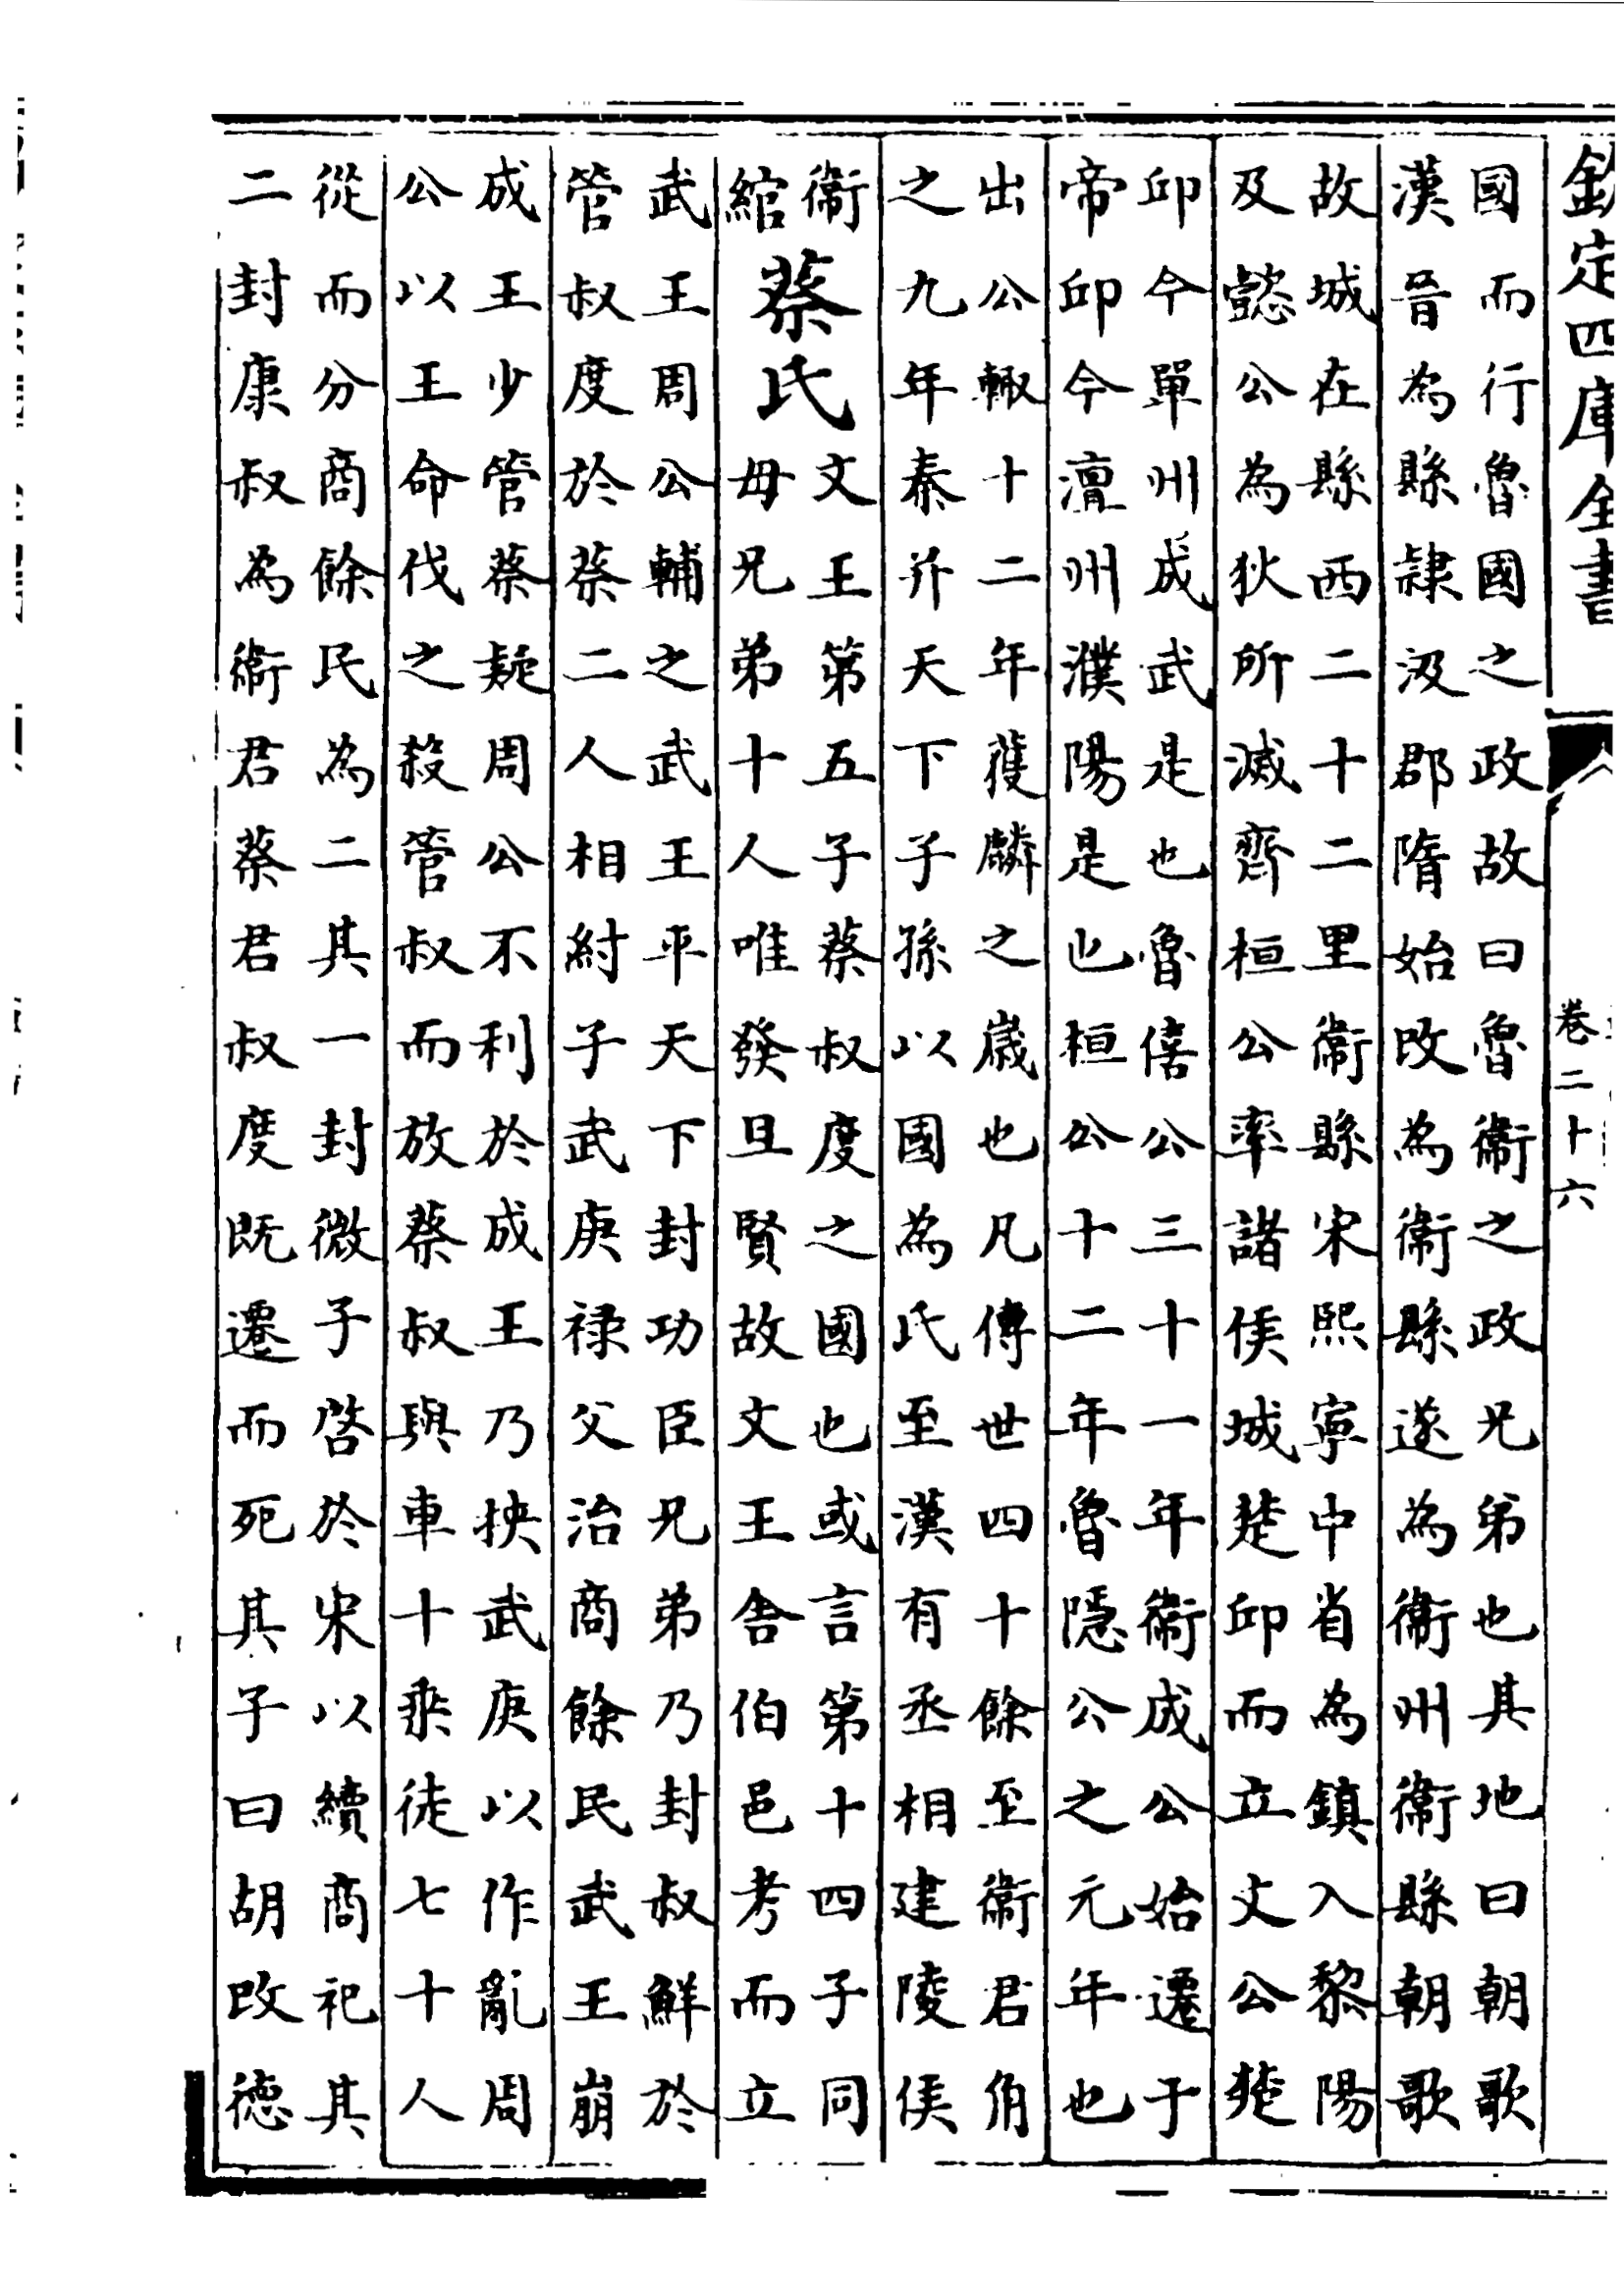 欽定四庫全書
卷二十六
國而行魯國之政故曰魯衞之政兄弟也其地曰朝歌
漢晉為縣隷汲郡隋始改為衞縣遂為衞州衞縣朝歌
故城在縣西二十二里衞縣宋熙寧中省為鎮入黎陽
及懿公為狄所滅齊桓公率諸侯城楚邱而立文公楚
邱今單州成武是也魯僖公三十一年衞成公始遷于
帝邱今澶州濮陽是也桓公十二年魯隱公之元年也
出公輙十二年獲麟之歲也凡傳世四十餘至衞君角
之九年秦并天下子孫以國為氏至漢有丞相建陵侯
衞
綰
蔡氏
文王第五子蔡叔度之國也或言第十四子同
母兄弟十人唯發旦賢故文王舎伯邑考而立
武王周公輔之武王平天下封功臣兄弟乃封叔鮮於
管叔度於蔡二人相紂子武庚禄父治商餘民武王崩
成王少管蔡疑周公不利於成王乃挾武庚以作亂周
公以王命伐之殺管叔而放蔡叔與車十乗徒七十人
從而分商餘民為二其一封微子啓於宋以續商祀其
二封康叔為衞君蔡君叔度既遷而死其子曰胡改德